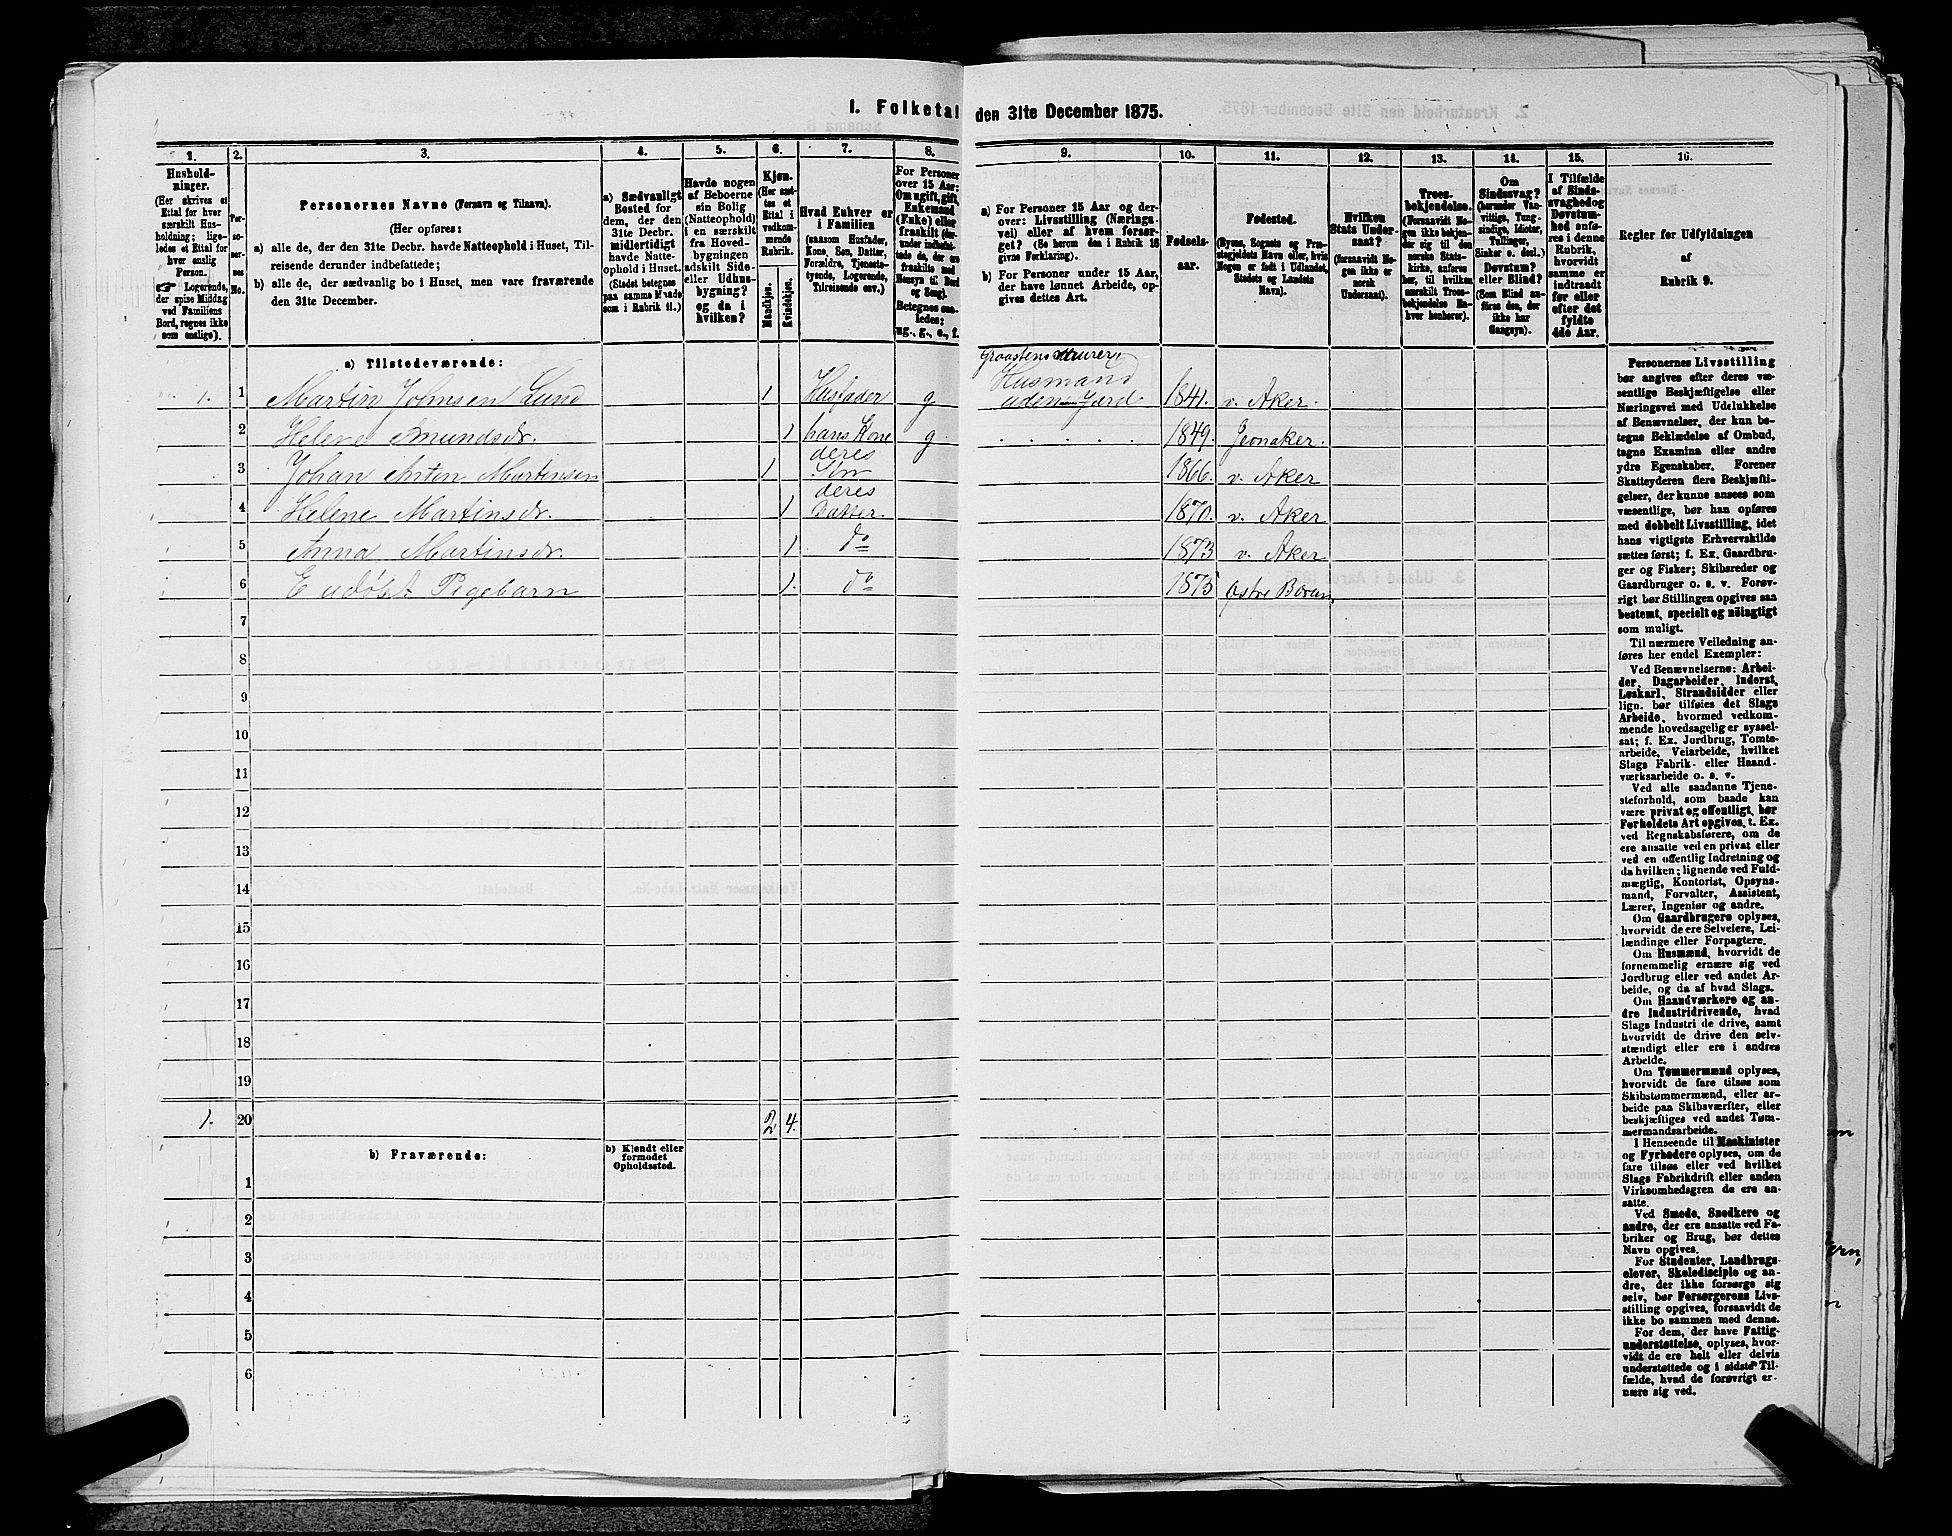 1. Folketal den 31te December 1875.
1.
2.
3.
4.
5.
6.
7.
8.
9.
10.
11.
12.
13.
14.
15.
16.
Husholdninger.
(Her skrives et
Ettal for hver
særskilt Husholdning;
ligeledes et Ettal for
hver enslig
Person.
Logerende,
der spise Middag
ved Familiens
Bord, regnes ikke
som enslige).
Personernes No.
Personernes Navne (Fornavn og Tilnavn).
(Her opføres:
a) alle de, der den 31te Decbr. havde Natteophold i Huset, Tilreisende derunder indbefattede;
b) alle de, der sædvanlig bo i Huset, men vare fraværende
den 31te December.
a) Sædvanligt
Bosted for
dem, der den
31te Decbr.
midlertidigt
havde Natteophold i Huset.
(Stedet betegnes
paa samme Maade
som i Rubrik 11.)
Havde nogen
af Beboerne
sin Bolig
(Natteophold)
i en særskilt
fra Hovedbygningen
adskilt Side-
eller Udhusbygning?
og da i
hvilken?
Kjøn.
(Her sættes et
Ettal i
vedkommende
Rubrik.
Mandkjøn.
Kvindekjøn.
Hvad Enhver er
i Familien
(saasom Husfader,
Kone, Søn, Datter,
Forældre, Tjenestetyende, Logerende,
Tilreisende osv.)
For Personer
over 15 Aar:
Om ugift, gift,
Enkemand
(Enke) eller
fraskilt
Betegnes saaledes:
ug., g., e., f.
a) For Personer 15 Aar og derover: Livsstilling (Næringsvei) eller af hvem forsørget? (Se herom den i Rubrik 16
givne Forklaring).
b) For Personer under 15 Aar,
der have lønnet Arbeide, opgives dettes Art.
Fødselsaar.
Fødested.
(Byens, Sognets og Præstegjeldets Navn eller, hvis
Nogen er født i Udlandet,
Stedets og Landets
Navn).
Hvilken
Stats Undersaat?
(forsaavidt Nogen ikke er
norsk
Undersaat).
Troesbekjendelse.
(Forsaavidt Nogen ikke bekjender sig til den
norske Statskirke, anføres
her, til hvilken
særskilt Troesbekjendelse Enhver henhører).
Om
Sindssvag?
(herunder Vanvittige, Tungsindige, Idioter,
Tullinger,
Sinker o. desl.)
Døvstum?
eller Blind?
(Som Blind anføres den, der
ikke har
Gangsyn).
I Tilfælde
af Sindssvaghed og
Døvstumhed anføres i denne
Rubrik,
hvorvidt
samme er
indtraadt
før eller
efter det
fyldte
4de Aar.
Regler for Udfyldningen
af
Rubrik 9.
a) Tilstedeværende:
Graastensmurer,
1. 1 Martin Johnsen Lund 1 Husfader g Husmand uden Jord 1841. v. Aker.
2 Helene Amundsdr. 1 hans Kone g 1849. Jevnaker.
3 Johan Anton Martinsen 1 deres Søn 1866. v. Aker
4 Helene Martinsdr. 1 deres Datter 1870. v. Aker
5 Anna Martinsdr. 1 do 1873 v. Aker
6 E udøbt Pigebarn 1. do 1875 Østre Bærum
7
8
9
10
11
12
13
14
15
16
17
18
19
1. 20 2 4.
b) Fraværende:
b) Kjendt eller
formodet
Opholdssted.
1
2
3
4
5
6
Personernes Livsstilling
bør angives efter deres væsentlige Beskjæftigelse eller
Næringsvei med Udelukkelse
af Benævnelser, der kun betegne Beklædelse af Ombud,
tagne Examina eller andre
ydre Egenskaber. Forener
Skatteyderen flere Beskjæftigelser, der kunne ansees som
væsentlige, bør han opføres
med dobbelt Livsstilling, idet
hans vigtigste Erhvervskilde
sættes først; f. Ex. Gaardbruger og Fisker; Skibsreder og
Gaardbruger o. s. v. Forøvrigt bør Stillingen opgives saa
bestemt, specielt og nöiagtigt
som muligt.
Til nærmere Veiledning anføres her endel Exempler:
Ved Benævnelserne: Arbeider, Dagarbeider, Inderst,
Løskarl, Strandsidder eller
lign. bør tilføies det Slags
Arbeide, hvormed vedkommende hovedsagelig er sysselsat; f. Ex. Jordbrug, Tomtearbeide, Veiarbeide, hvilket
Slags Fabrik- eller Haandværksarbeide o. s. v.
Ved alle saadanne Tjenesteforhold, som baade kan
være privat og offentligt, bør
Forholdets Art opgives, t. Ex.
ved Regnskabsførere, om de
ere ansatte ved en privat eller
ved en offentlig Indretning og
da hvilken; lignende ved Fuldmægtig, Kontorist, Opsynsmand, Forvalter, Assistent,
Lærer, Ingeniør og andre.
Om Gaardbrugere oplyses,
hvorvidt de ere Selveiere, Leilændinge eller Forpagtere.
Om Husmænd, hvorvidt de
fornemmelig ernære sig ved
Jordbrug eller ved andet Arbeide, og da af hvad Slags.
Om Haandværkere og andre Industridrivende, hvad
Slags Industri de drive, samt
hvorvidt de drive den selvstændigt eller ere i andres
Arbeide.
Om Tømmermænd oplyses,
hvorvidt de fare tilsøs som
Skibstømmermænd, eller arbeide paa Skibsværfter, eller
beskjæftiges ved andet Tømmermandsarbeide.
I Henseende til Maskinister
og Fyrbødere oplyses, om de
fare tilsøs eller ved hvilket
Slags Fabrikdrift eller anden
Virksomhedsgren de ere ansatte.
Ved Smede, Snedkere og
andre, der ere ansatte ved Fabriker og Brug, bør dettes
Navn opgives.
For Studenter, Landbrugselever, Skoledisciple og andre, der ikke forsørge sig
selv, bør Forsørgerens Livsstilling opgives, forsaavidt de
ikke bo sammen med denne.
For dem, der have Fattigunderstøttelse, oplyses, hvorvidt de ere helt eller delvis
understøttede og i sidste Tilfælde, hvad de forøvrigt ernære sig ved.